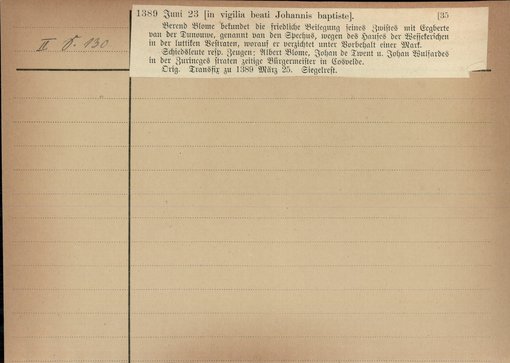 1389 Juni 23 [in vigilia beati Johannis baptiste]. [35
Berend Blome bekundet die friedliche Beilegung seines Zwistes mit Eegberte
van der Dunouwe, genannt van den Spechus, wegen des Hauses der Wessekerschen
in der luttiken Vestraten, worauf er verzichtet unter Vorbehalt einer Mark.
Schiedsleute resp. Zeugen: Albert Blome, Johan de Twent u. Johan Wulfardes
in der straten zeitige Bürgermeister in Cosvelde.
Orig. Transfix zu 1389 März 25. Siegelrest.
II 130